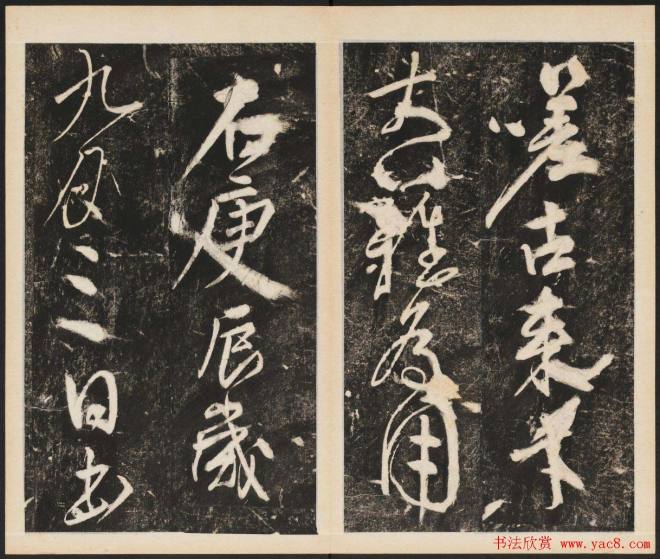 嗟古来才
大难为用
右庚辰岁
九月三日书
书法欣赏 www.yac8.com